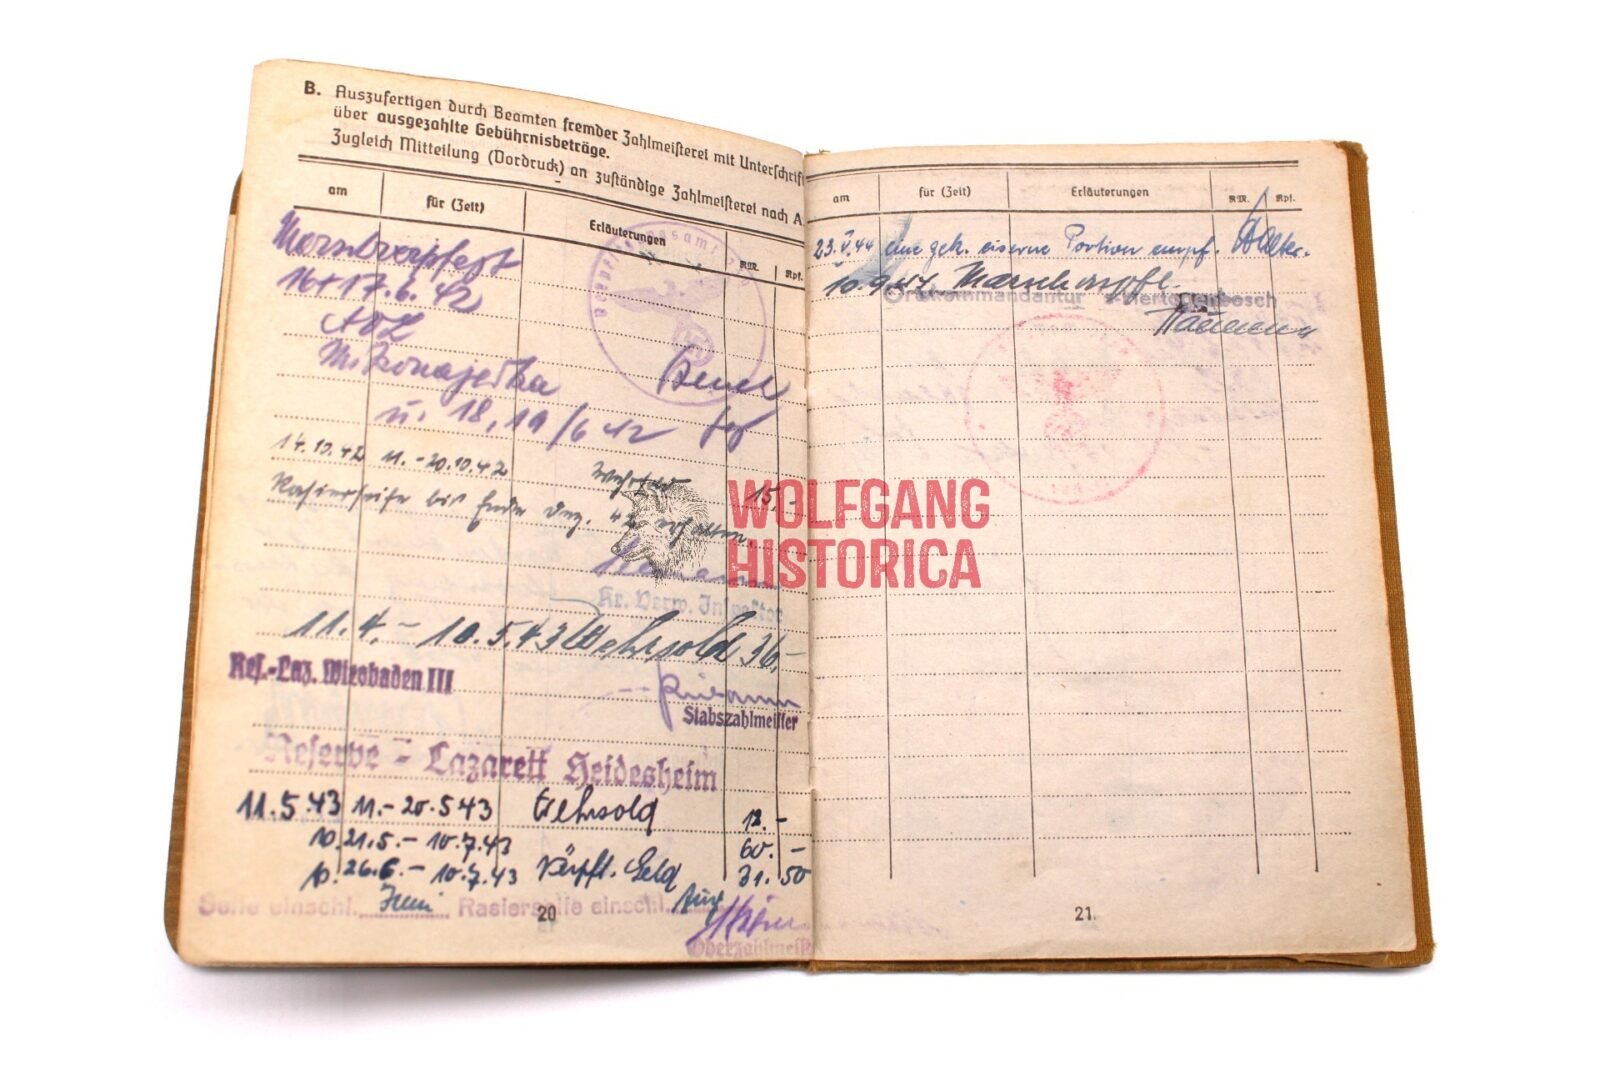 B. Auszufertigen durch Beamten fremder Zahlmeisterei mit Unterschrift
über ausgezahlte Gebührnisbeträge.
Zugleich Mitteilung (Vordruck) an zuständige Zahlmeisterei nach A
am für (Zeit) Erläuterungen RM. Rpf.
Marschverpflegt
16+17.6.42
u. 18,19/6 42
14.10.42 11.-20.10.42 Wehrsold 15,-
Rasierseife bis Ende Dez. 42 erhalten.
Kr. Verw. Inspektor
11.4. - 10.5.43 Wehrsold 36,-
Res.-Laz. Wiesbaden III
Stabszahlmeister
Reserve - Lazarett Heidesheim
11.5.43 11.-20.5.43 Wehrsold 12.-
21.5.- 10.7.43 60.-
26.6.- 10.7.43 Verpfl. Geld 31.50
Seife einschl. Juni Rasierseife einschl. Aug
Oberzahlmeister
20
am für (Zeit) Erläuterungen RM. Rpf.
23.V.44 eine gek. eiserne Portion empf.
10.9.44 Marschverpfl.
Ortskommandantur s'Hertogenbosch
21
WOLFGANG
HISTORICA